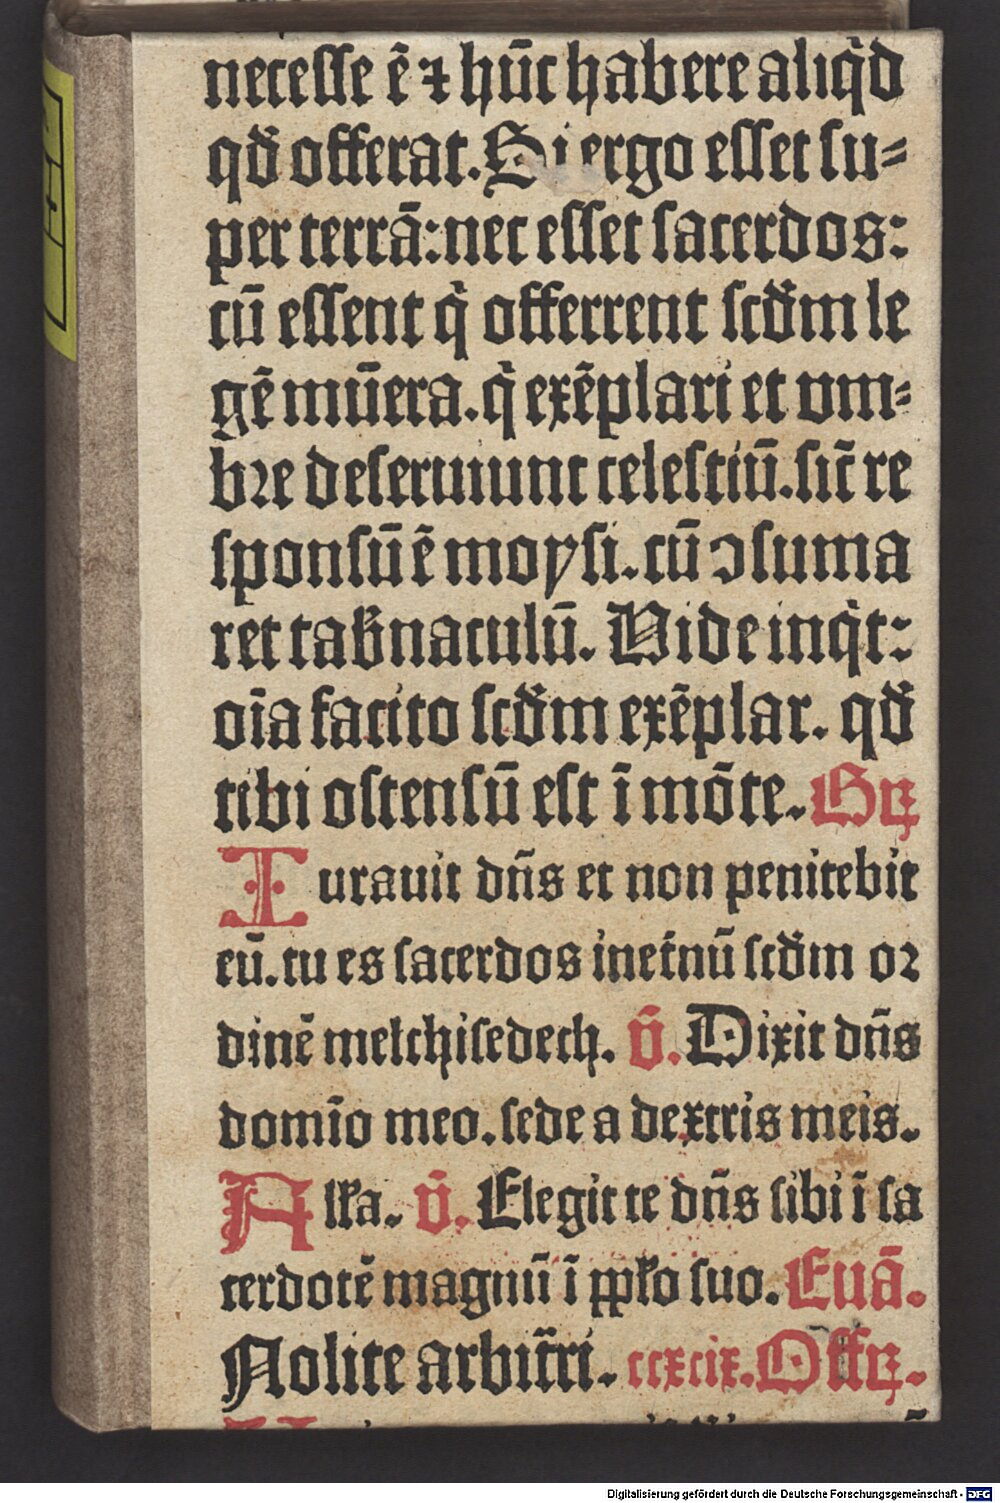 necesse ē ⁊ hūc habere aliqd̓
qđ offerat. Si ergo esset su⸗
per terrā: nec esset sacerdos:
cū essent q̇ offerrent scđm le
gē mūera. q̇ exēplari et vm⸗
bre deseruiunt celestiū. sic̄ re
sponsū ē moysi. cū ↄsuma
ret tabn̄aculū. Vide inq̇t:
oīa facito scđm exēplar. qđ
tibi ostensū est ī mōte. Gꝝ
Iurauit dn̄s et non penitebit
eū. tu es sacerdos inet̄nū scđm or
dinē melchisedech. v̄. Dixit dn̄s
domīo meo. sede a dextris meis.
Alľa. v̄. Elegit te dn̄s sibi ī sa
cerdotē magnū ī ppľo suo. Euā.
Nolite arbit̄ri. ccxcix. Offꝝ.
Digitalisierung gefördert durch die Deutsche Forschungsgemeinschaft - DFG